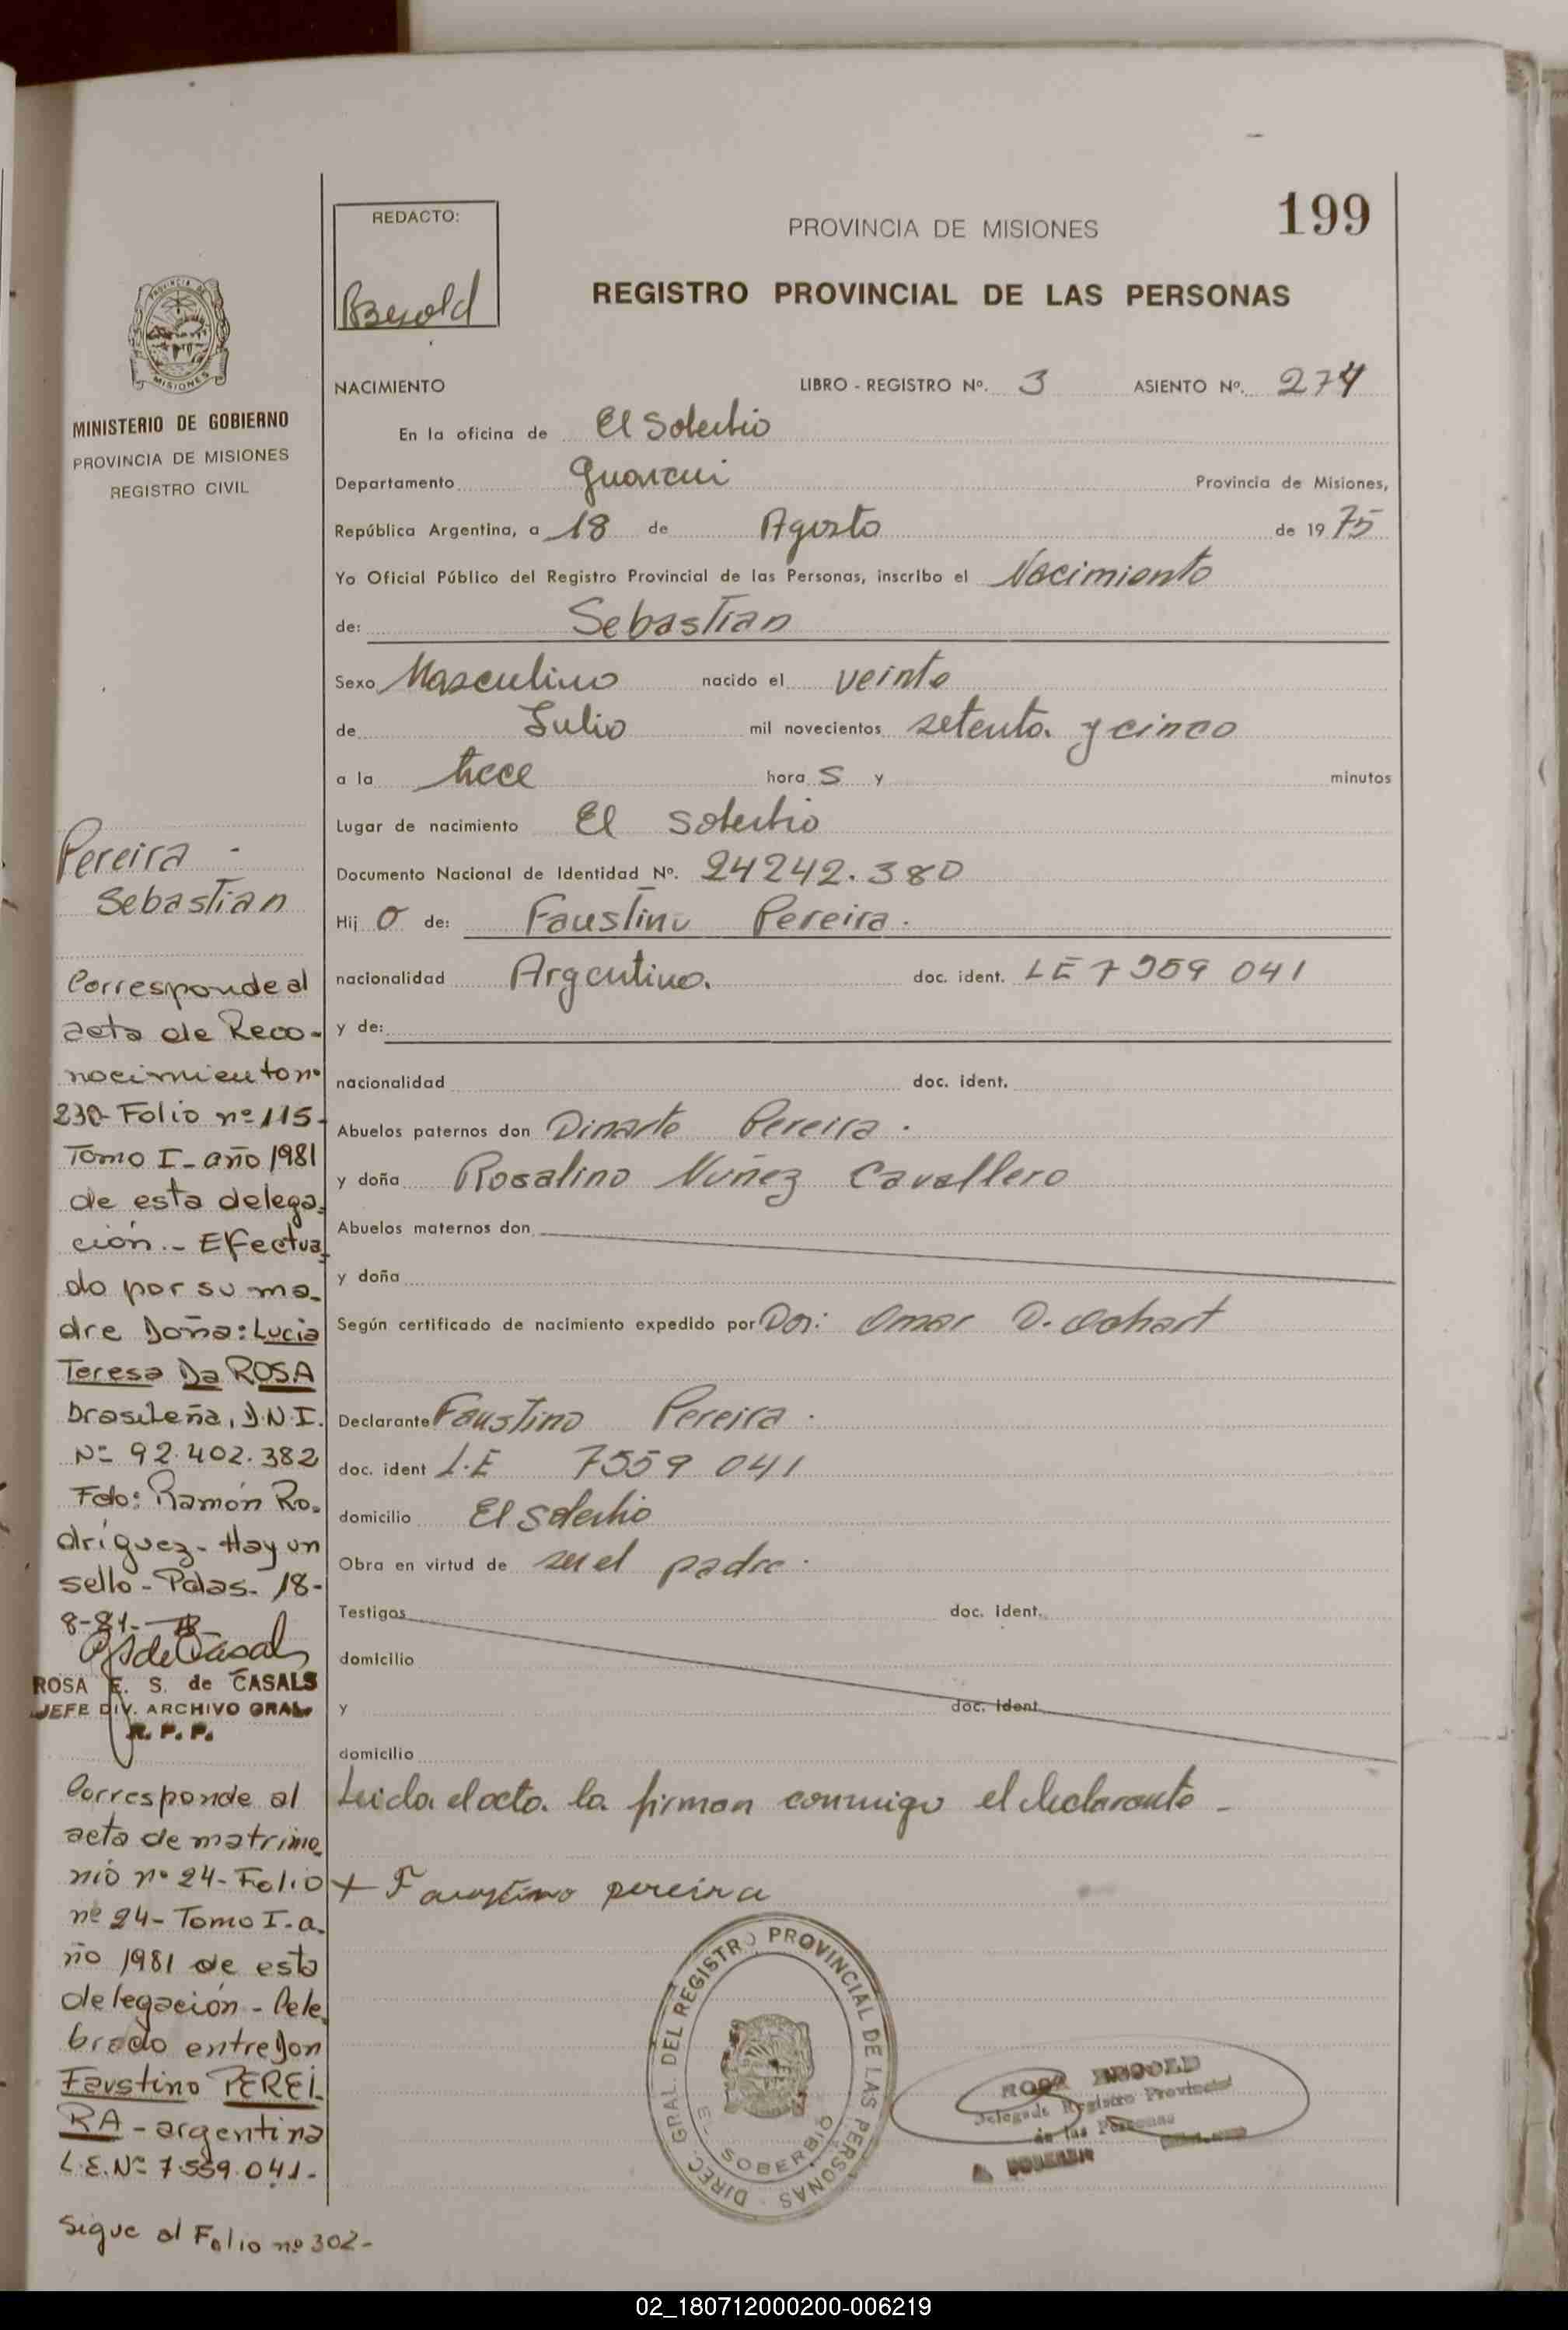 199
REDACTO:
Besold
PROVINCIA DE MISIONES
REGISTRO PROVINCIAL DE LAS PERSONAS
MISIONES
MINISTERIO DE GOBIERNO
PROVINCIA DE MISIONES
REGISTRO CIVIL
NACIMIENTO LIBRO - REGISTRO Nº. 3 ASIENTO Nº. 274
En la oficina de El Soberbio
Departamento Guarani Provincia de Misiones,
República Argentina, a 18 de Agosto de 19 75
Yo Oficial Público del Registro Provincial de las Personas, inscribo el Nacimiento
de: Sebastian
Sexo Masculino nacido el veinte
de Julio mil novecientos setenta y cinco
a la trece hora s y minutos
Lugar de nacimiento El Soberbio
Documento Nacional de Identidad Nº. 24242.380
Hij o de: Faustino Pereira.
nacionalidad Argentino. doc. ident. LE 7559 041
y de:
nacionalidad doc. ident.
Abuelos paternos don Dinarte Pereira.
y doña Rosalino Nuñez Cavallero
Abuelos maternos don
y doña
Según certificado de nacimiento expedido por Dor: Omar D.
Declarante Faustino Pereira.
doc. ident L.E 7559 041
domicilio El Soberbio
Obra en virtud de ser el padre.
Testigos doc. ident.
domicilio
y doc. ident.
domicilio
Leida el acta. la firman conmigo el declarante -
+ Faustino pereira
DIREC. GRAL. DEL REGISTRO PROVINCIAL DE LAS PERSONAS
EL SOBERBIO
ROSA BESOLD
Delegado Registro Provincial
de las Personas
EL SOBERBIO
Pereira -
Sebastian
Corresponde al
acta de Reco-
nocimiento nº
230- Folio nº 115-
Tomo I - año 1981
de esta delega-
ción.- Efectua-
do por su ma-
dre Doña: Lucia
Teresa Da ROSA
brasileña, D.N.I.
Nº 92.402.382
Fdo: Ramón Ro-
dríguez - Hay un
sello - Pdas. 18-
8-81.-
RS de Casals
ROSA E. S. de CASALS
JEFE DIV. ARCHIVO GRAL.
R. P. P.
Corresponde al
acta de matrimo-
nio nº 24- Folio
nº 24- Tomo I - a-
ño 1981 de esta
delegación - Cele-
brado entre Don
Faustino PEREI-
RA - argentino
L.E. Nº 7.559.041-
Sigue al Folio nº 302-
02_180712000200-006219